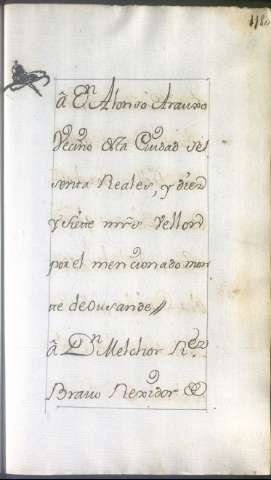 â Dn Alonso Arauxo
Vecino dsta Ciudad ses
senta Reales, y diez
y siete mrs Vellon
por el mencionado mon
te de Ousande //
â Dn Melchor Rez
Bravo Rexidor